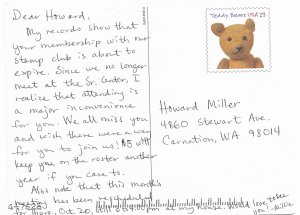 Dear Howard,
My records show that
your membership with our
stamp club is about to
expire. Since we no longer
meet at the Sr. Center, I
realize that attending is
a major inconvenience
for you. We all miss you
and wish there were a way
for you to join us! $5 will
keep you on the roster another
year if you care to.
Also note that this month's
meeting has been rescheduled
for Thurs, Oct 20, still at my house.
love to see
you! - Millie
Teddy Bears USA 23
Howard Miller
4860 Stewart Ave.
Carnation, WA 98014